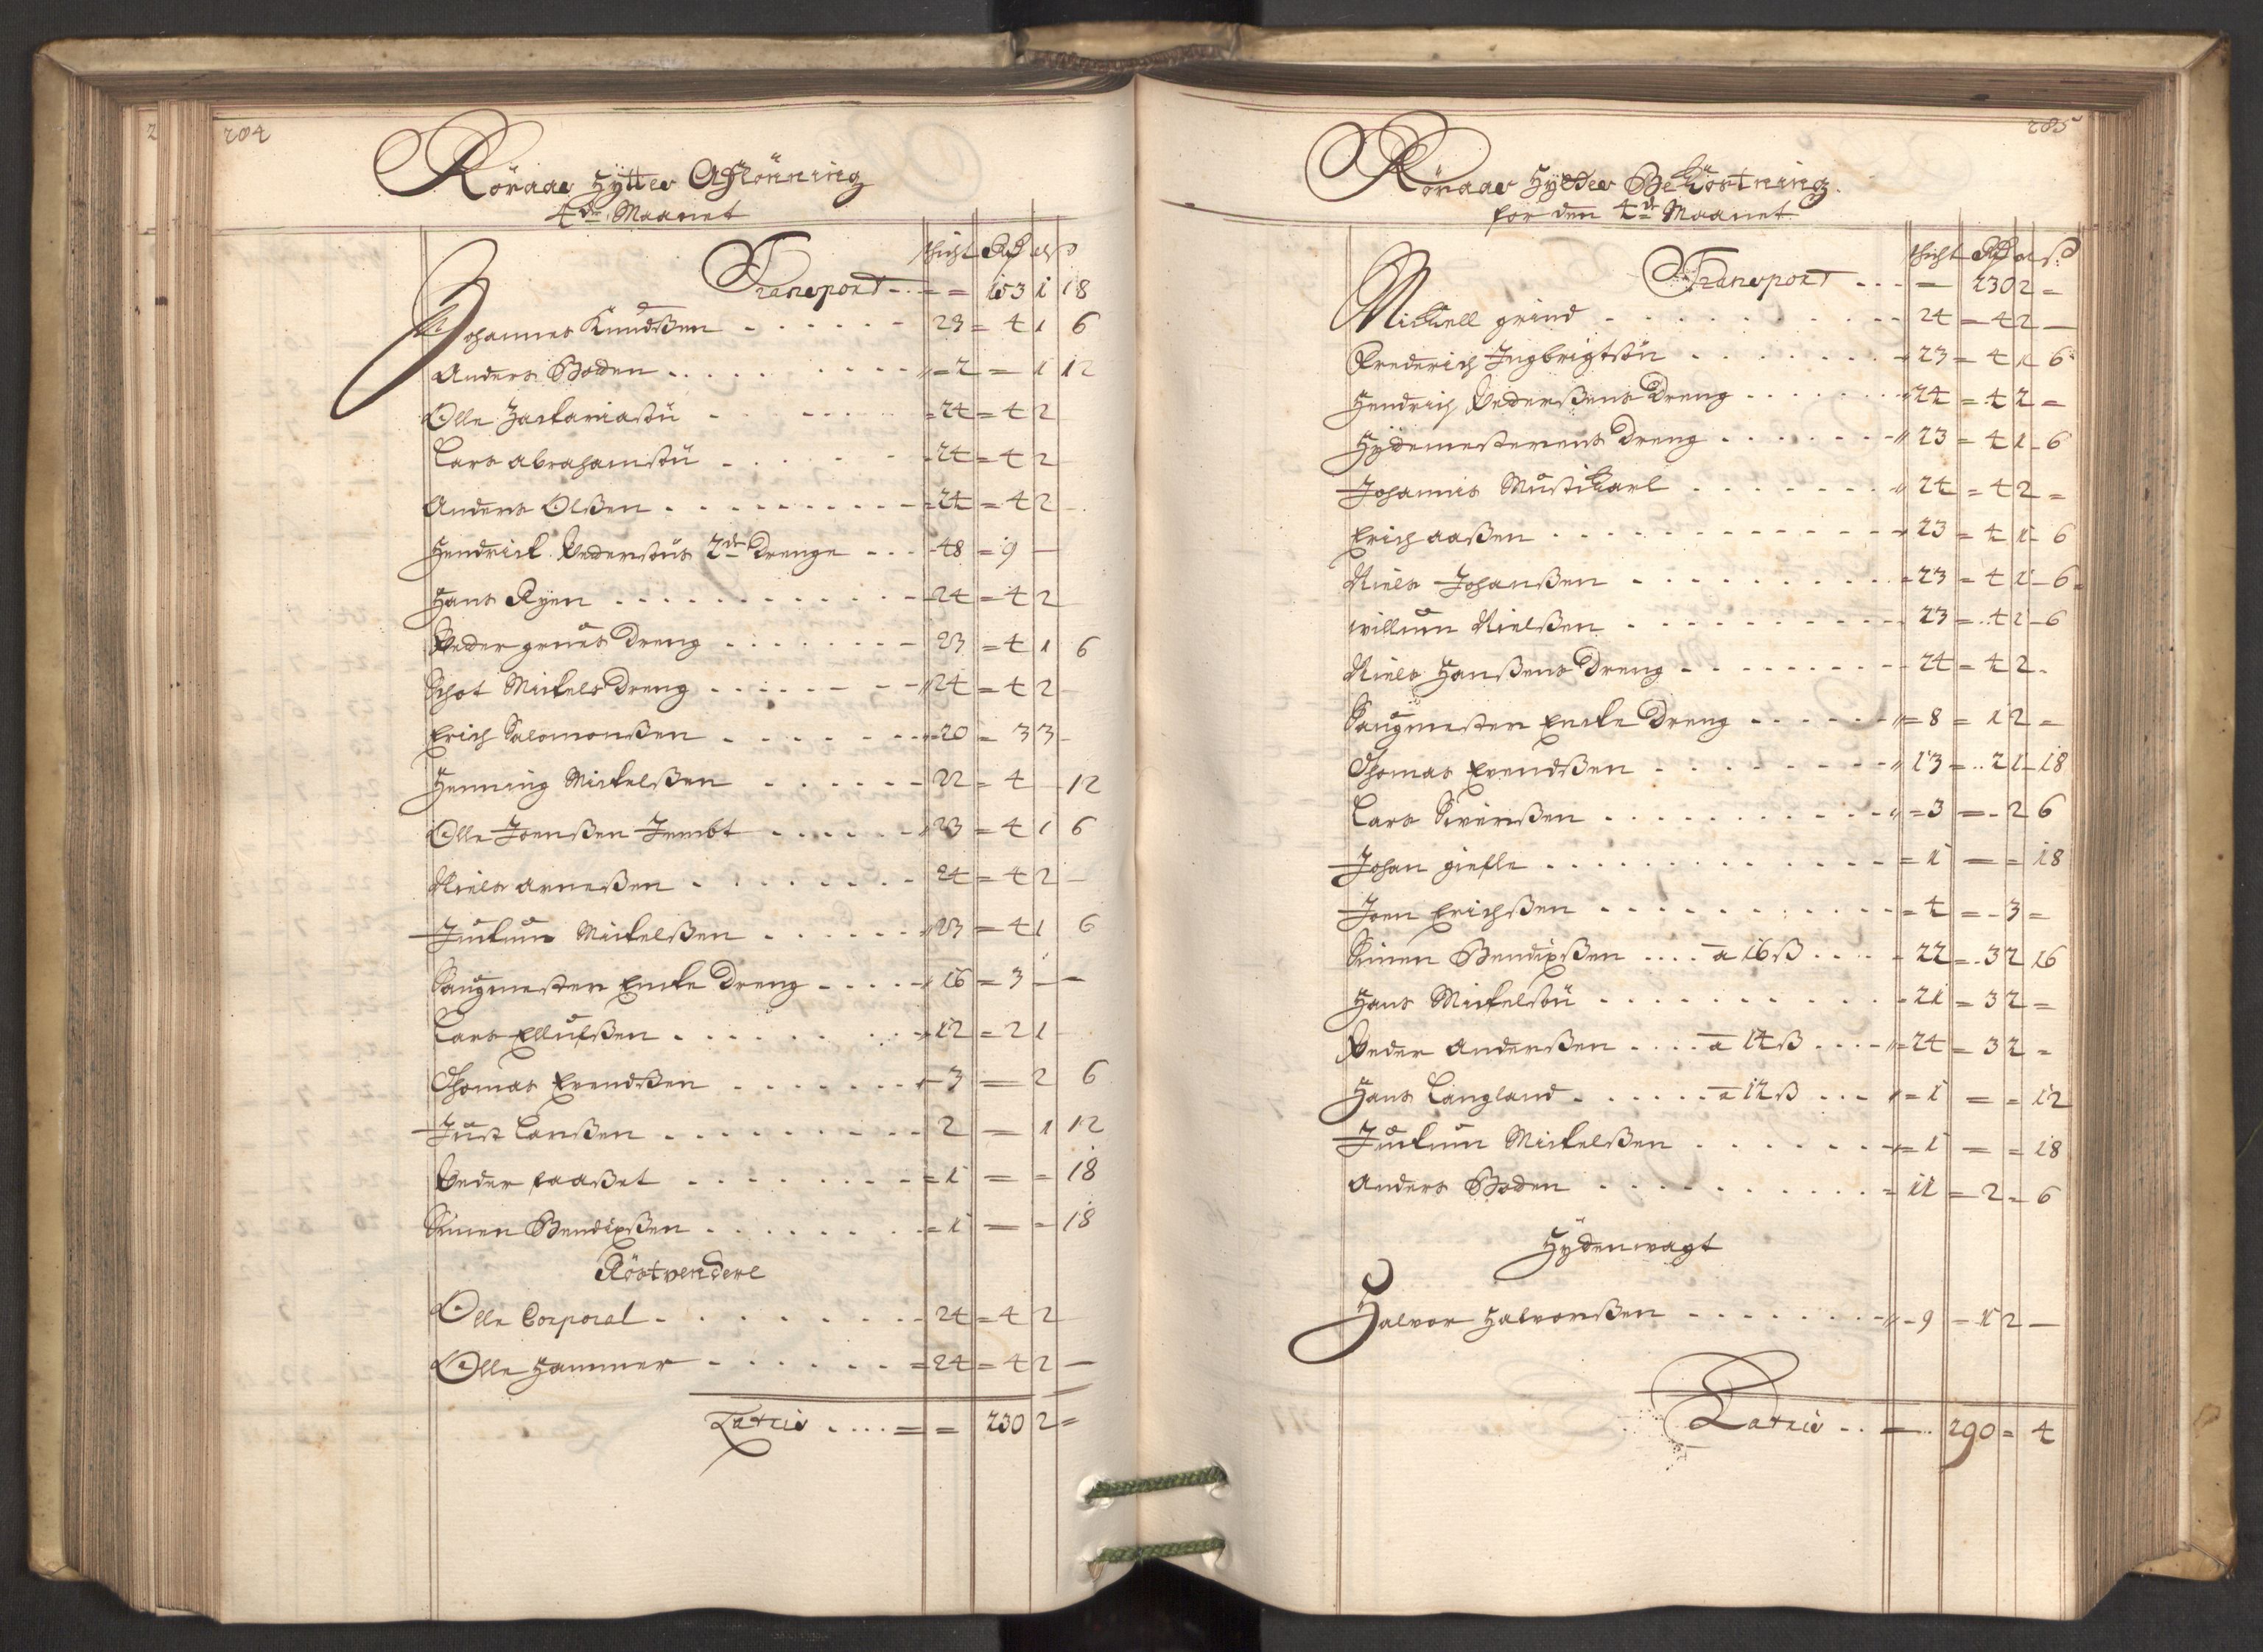 204
Röraas Hytter Afflönning
4de Maanet
schicht Rd ort ß
Transport - - = = 153 1 18
Johannes Knudßen - - - - - 23 = 4 1 6
Anders Boden - - - - - = 2 = 1 12
Olle Zackariasön - - - - = 24 = 4 2
Lars Abrahamsön - - - - = 24 = 4 2
Anders Olßen - - - - - = 24 = 4 2 -
Hendrick Pedersöns 2de Drenge - - - 48 = 9 -
Hans Ryen - - - - - 24 = 4 2
Peder grues Dreng - - - - 23 = 4 1 6
Schot Mickels Dreng - - - - 24 = 4 2 -
Erich Salomonßen - - - - 20 = 3 3 -
Henning Mickelßen - - - - 22 = 4 - 12
Olle Joenßen Jembt - - - - 23 = 4 1 6
Niels Arneßen - - - - 24 = 4 2 -
Juckum Mickelßen - - - - 23 = 4 1 6
Saugmester Encke Dreng - - - - 16 = 3 - -
Lars Ellufßen - - - - 12 = 2 1 -
Thomas Evendßen - - - - 3 = 2 6
Just Larßen - - - - 2 = 1 12
Peder faaßet - - - - = 1 = = 18
Simen Bendixßen - - - - = 1 = = 18
Röstvendere
Olle Corporal - - - - 24 = 4 2
Olle Hammer - - - - = 24 = 4 2 -
Latris - - - = = 230 2 =
205
Röraas Hytter Bekostning
for den 4de Maanet
schicht Rd ort ß
Transport - - - = 230 2 =
Mickell grind - - - - 24 = 4 2 -
Frederich Ingbrigtsön - - - - 23 = 4 1 6
Hendrich Pederßens Dreng - - - - 24 = 4 2 =
Hydemesterens Dreng - - - - 23 = 4 1 - 6
Johannis Mustikarl - - - - 24 = 4 2 =
Erich aaßen - - - - 23 = 4 1 - 6
Niels Johanßen - - - - = 23 = 4 1 - 6
Willum Nielßen - - - - 23 = 4 1 - 6
Niels Hanßens Dreng - - - - 24 = 4 2 -
Saugmester Encke Dreng - - - - = 8 = 1 2 =
Thomas Evendßen - - - - 13 = 2 1 - 18
Lars Siverßen - - - - = 3 = - 2 6
Johan giefle - - - - = 1 = = 18
Joen Erichßen - - - - = 4 = - 3 =
Simen Bendixßen - - - a 16 ß - - - 22 = 3 2 16
Hans Mickelsön - - - - 21 = 3 2 =
Peder Anderßen - - - a 14 ß - - - = 24 = 3 2 =
Hans Langland - - - - a 12 ß - - - = 1 = = 12
Juckum Mickelßen - - - - = 1 = = 18
Anders Boden - - - - = 11 = 2 = 6
Hydenwagt
Halvor Halvorßen - - - - - 9 = 1 2 -
Latris - - = - 290 = 4